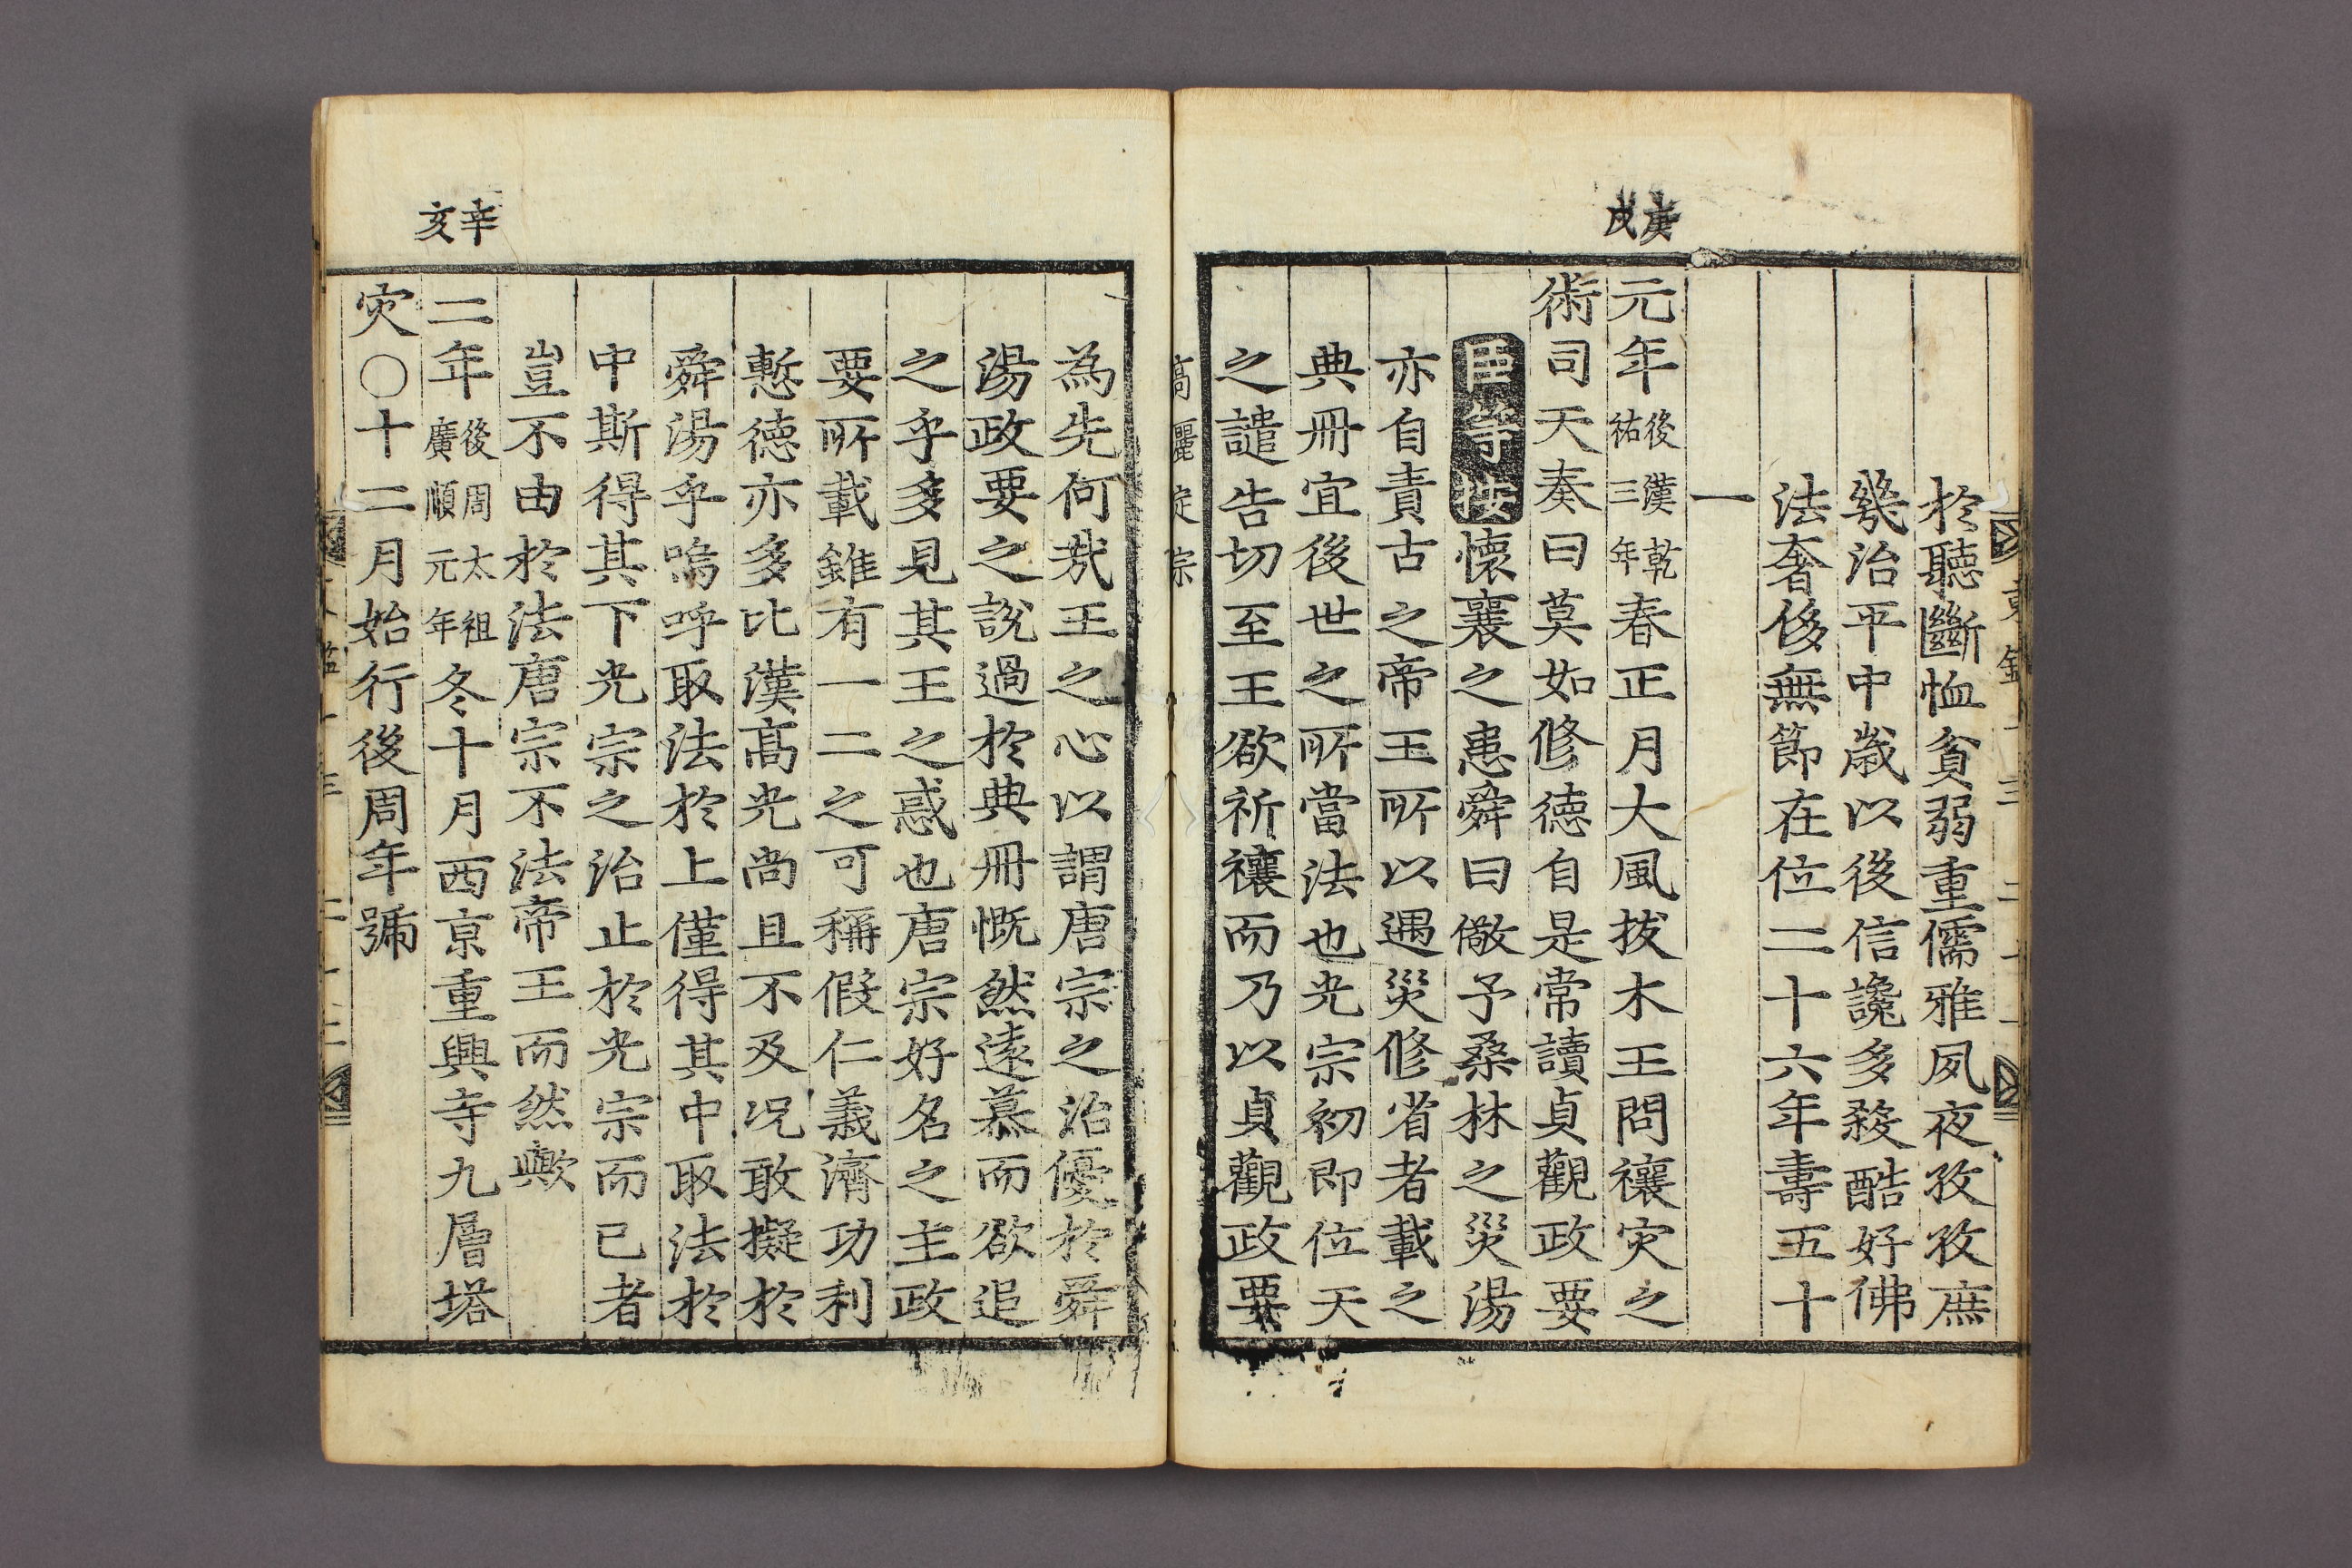 庚戌
於聽斷恤貧弱重儒雅夙夜孜孜庶
幾治平中歲以後信讒多殺酷好佛
法奢侈無節在位二十六年壽五十
一
元年後漢乾祐三年春正月大風拔木王問禳灾之
術司天奏曰莫如修德自是常讀貞觀政要
臣等按懷襄之患舜曰儆予桑林之災湯
亦自責古之帝王所以遇災修省者載之
典冊宜後世之所當法也光宗初即位天
之譴告切至王欲祈禳而乃以貞觀政要
高麗定宗
辛亥
為先何哉王之心以謂唐宗之治優於舜
湯政要之說過於典冊慨然遠慕而欲追
之乎多見其王之惑也唐宗好名之主政
要所載雖有一二之可稱假仁義濟功利
慙德亦多比漢高光尚且不及況敢擬於
舜湯乎嗚呼取法於上僅得其中取法於
中斯得其下光宗之治止於光宗而已者
豈不由於法唐宗不法帝王而然歟
二年後周太祖廣順元年冬十月西京重興寺九層塔
灾○十二月始行後周年號